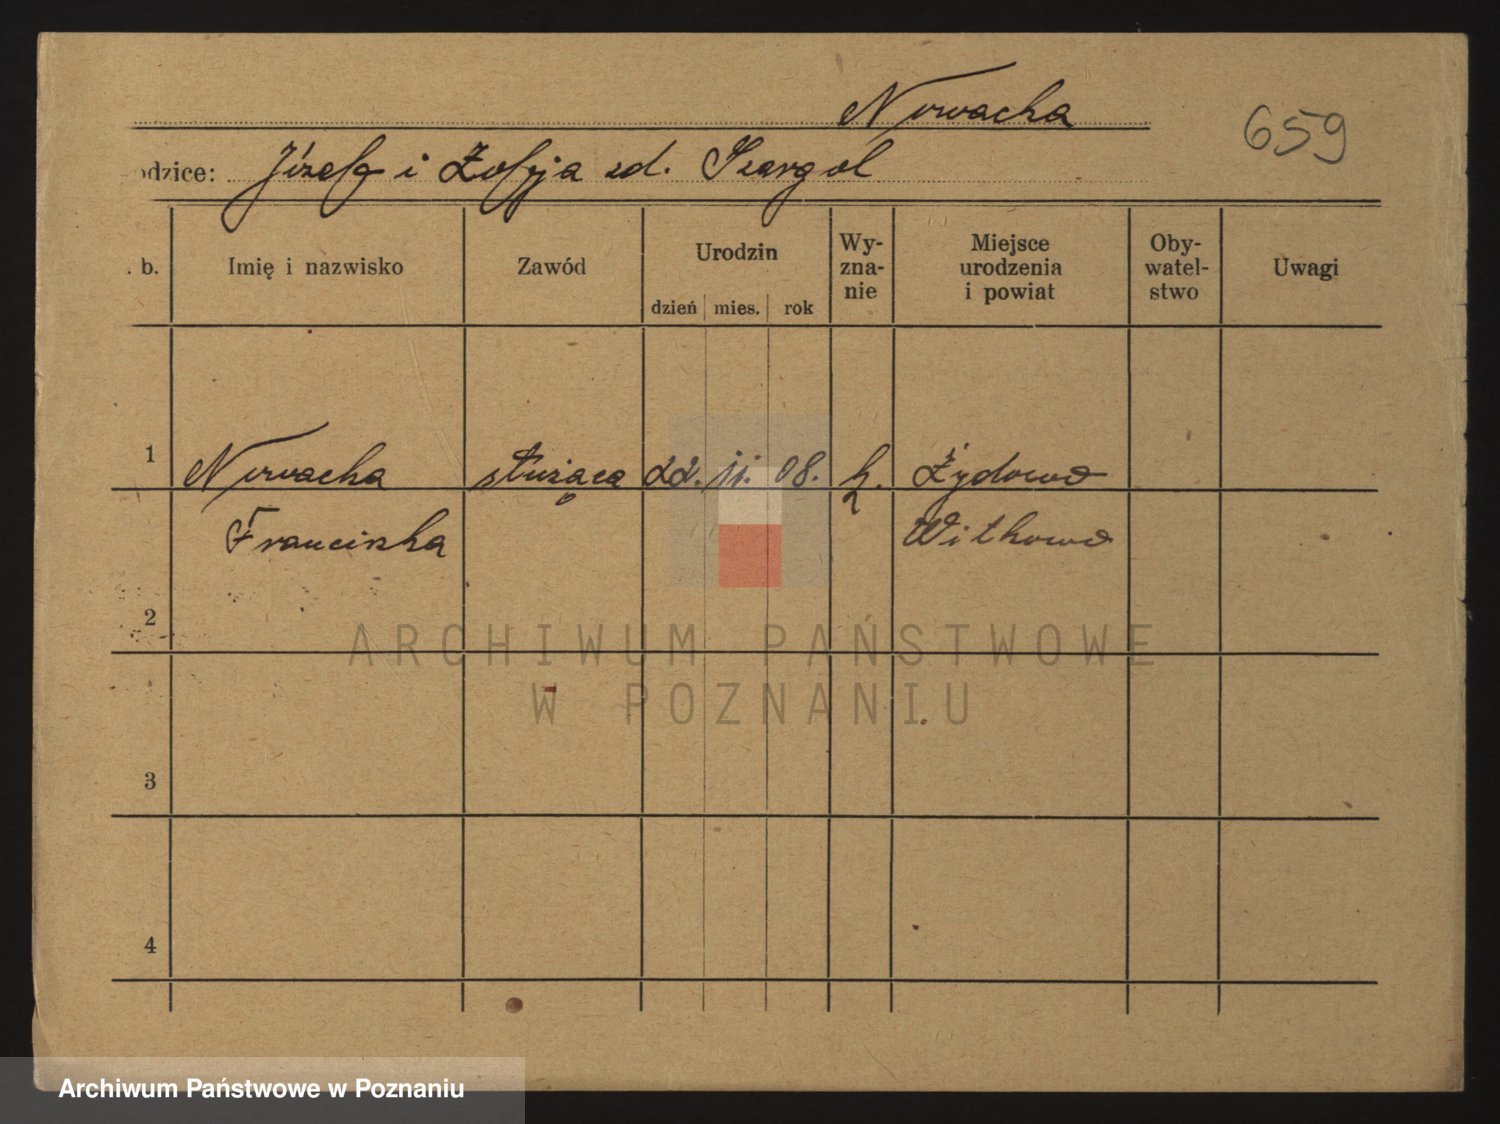 Nowacka
659
odzice: Józef i Zofja zd. Szargol
. b.
Imię i nazwisko
Zawód
Urodzin
dzień mies. rok
Wy-
zna-
nie
Miejsce
urodzenia
i powiat
Oby-
watel-
stwo
Uwagi
1 Nowacka służąca 22. 11. 08. k. Żydowo
Franciszka Witkowo
2
3
4
ARCHIWUM PAŃSTWOWE
W POZNANIU
Archiwum Państwowe w Poznaniu